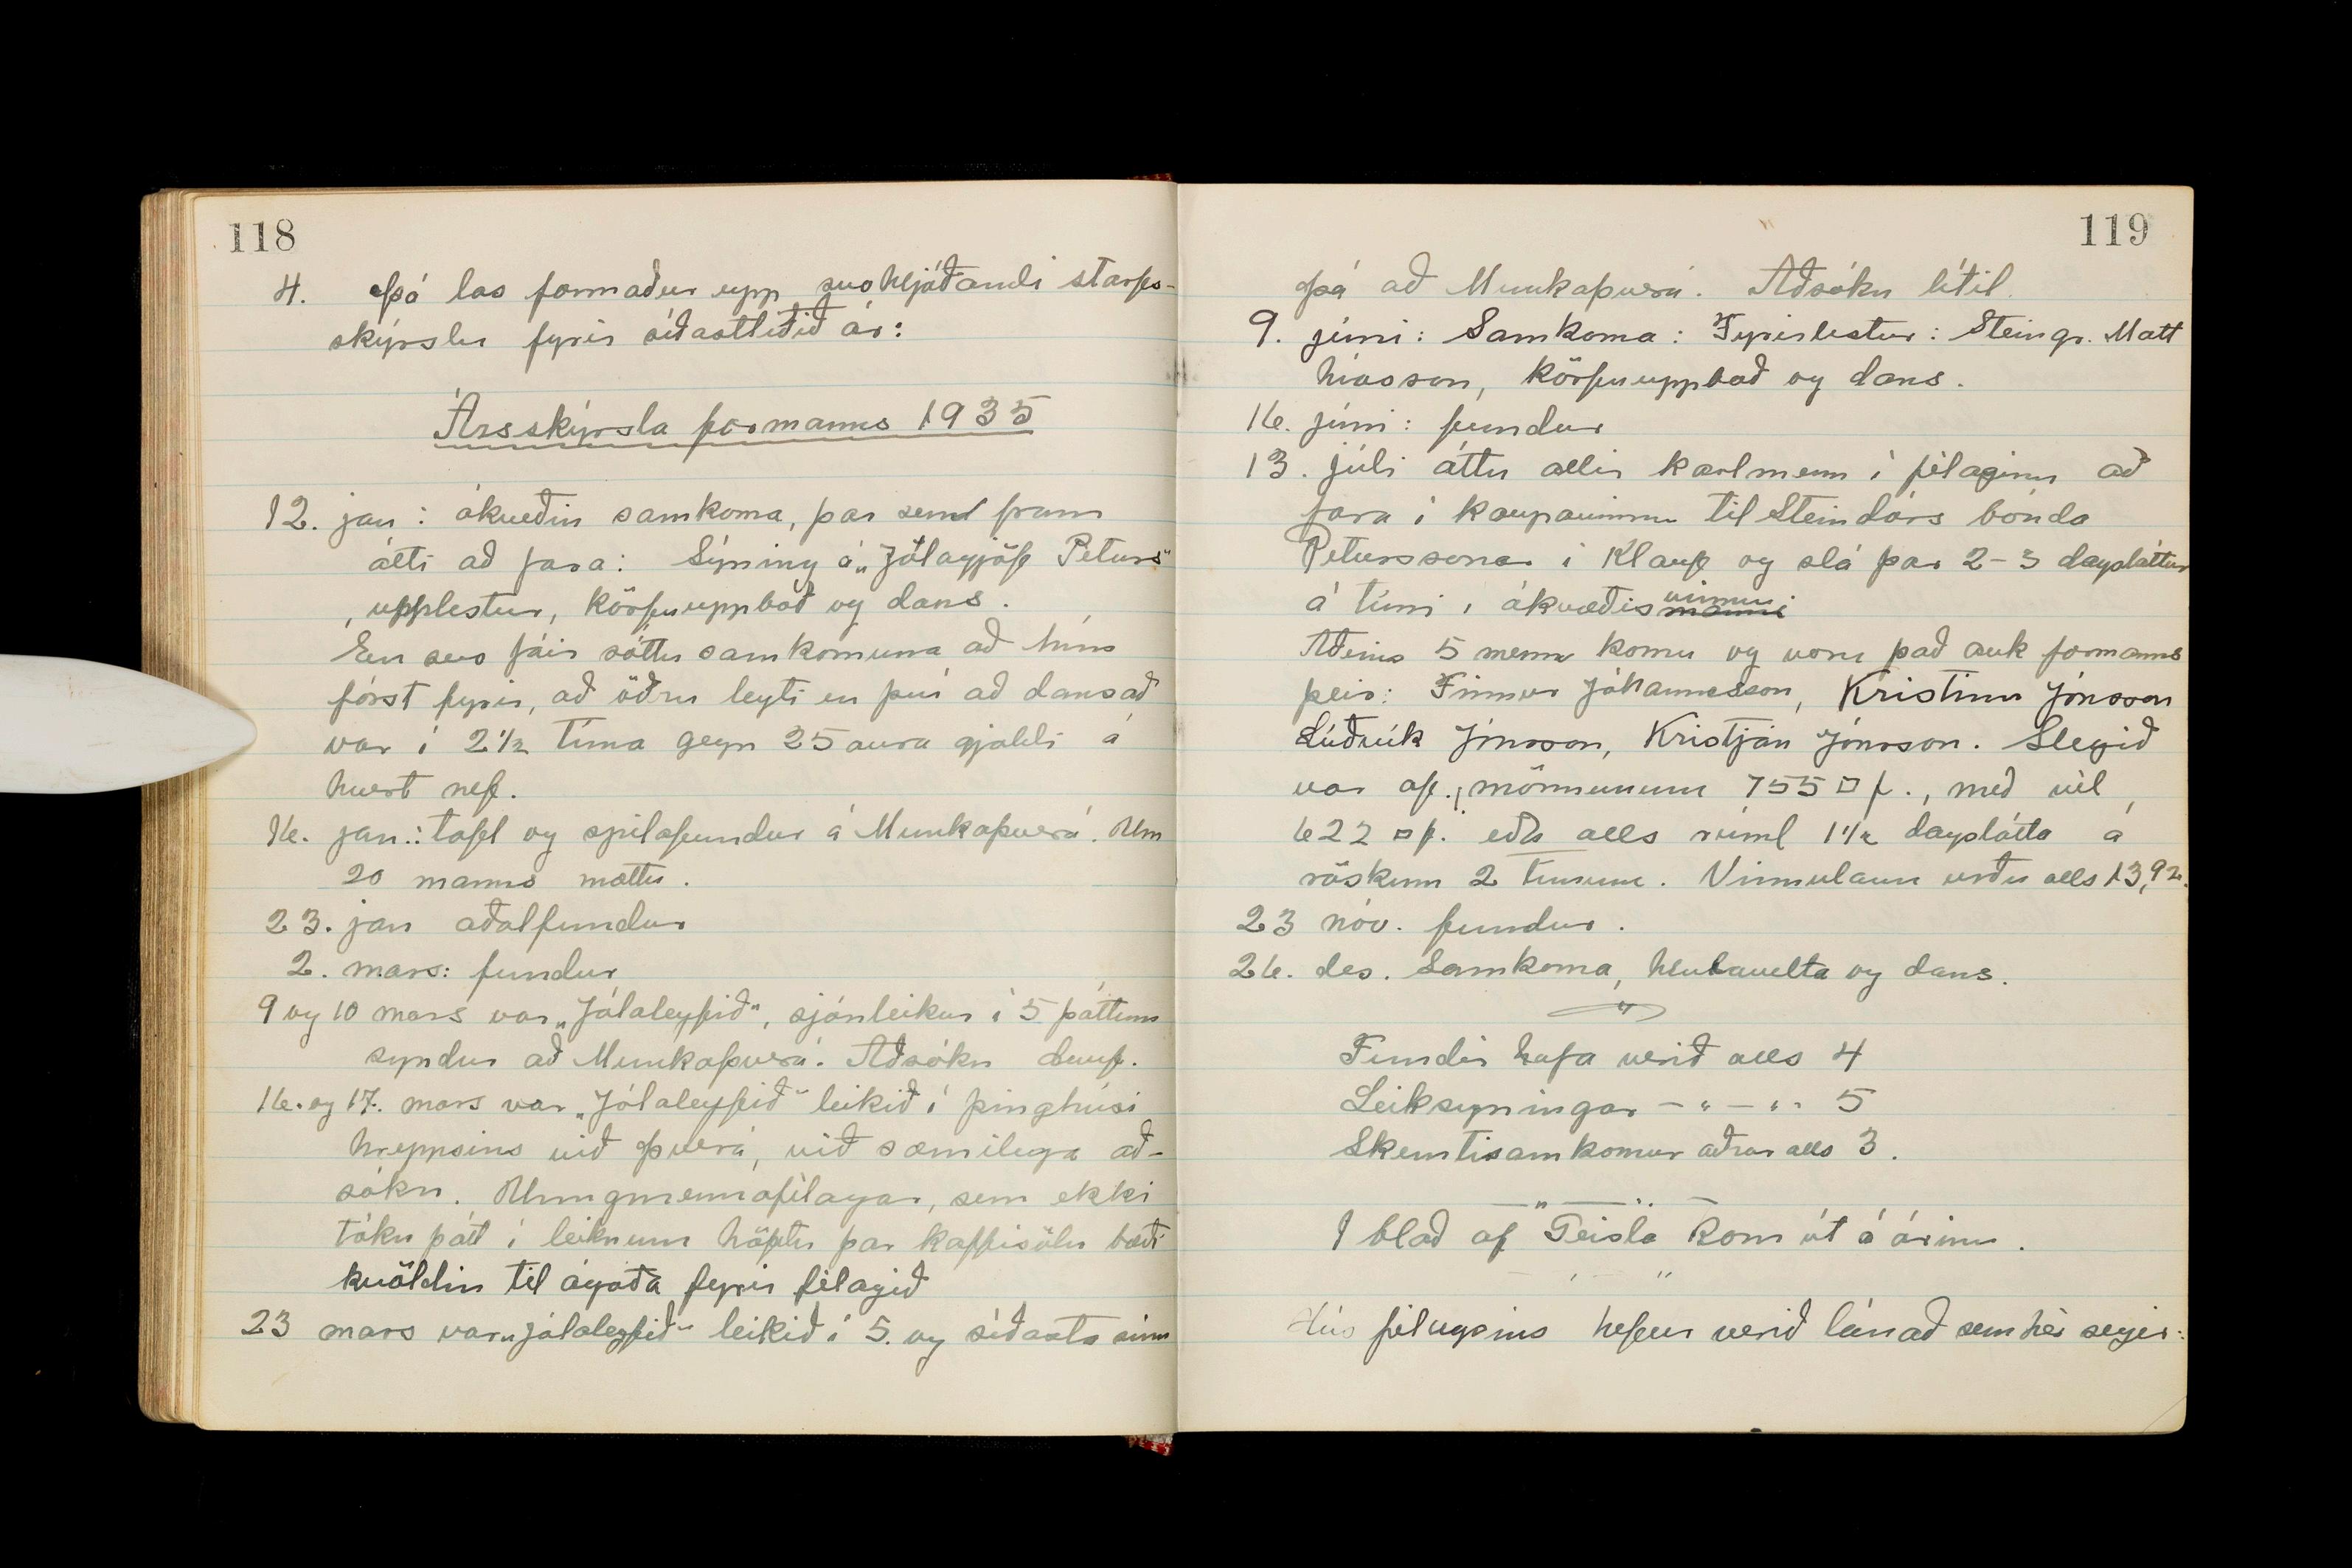 118
4. Þá las formaður upp svohljóðandi starfs-
skýrslu fyrir síðastliðið ár:
Ársskýrsla formanns 1935
12. jan: ákveðin samkoma, þar sem fram
átti að fara: Sýning á „Jólagjöf Péturs"
, upplestur, körfuuppboð og dans.
En svo fáir sóttu samkomuna að hún
fórst fyrir, að öðru leyti en því að dansað
var í 2½ tíma gegn 25 aura gjaldi á
hvert nef.
16. jan.: tafl og spilafundur á Munkaþverá. Um
20 manns mættu.
23. jan aðalfundur
2. mars: fundur
9 og 10 mars var „Jólaleyfið", sjónleikur í 5 þáttum
syndur að Munkaþverá. Aðsókn dauf.
16. og 17. mars var „Jólaleyfið" leikið í þinghúsi
hreppsins við Þverá, við sæmilega að-
sókn. Ungmennafélagar, sem ekki
tóku þátt í leiknum höfðu þar kaffisölu bæði
kvöldin til ágóða fyrir félagið
23 mars var „Jólaleyfið" leikið í 5. og síðasta sinn
119
þá að Munkaþverá. Aðsókn lítil.
9. júní: Samkoma: Fyrirlestur: Steingr. Matt
híasson, körfuuppboð og dans.
16. júní: fundur
13. júlí áttu allir karlmenn í félaginu að
fara í kaupavinnu til Steindórs bónda
Péturssonar í Klauf og slá þar 2-3 dagsláttur
á túni í ákvæðisvinnu manni
Aðeins 5 menn komu og voru það auk formanns
þeir: Finnur Jóhannesson, Kristinn Jónsson
Lúðvík Jónsson, Kristján Jónsson. Slegið
var af mönnunum 755 □ f., með vél
622 □ f. eða alls rúml 1½ daglátta á
röskum 2 tímum. Vinnulaun urðu alls 13,92.
23 nóv. fundur.
26. des. Samkoma, hlutavelta og dans.
Fundir hafa verið alls 4
Leiksyningar - " - " - 5
Skemtisamkomur aðrar alls 3.
1 blað af "Geisla kom út á árinu.
Hús félagsins hefur verið lánað sem hér segir: